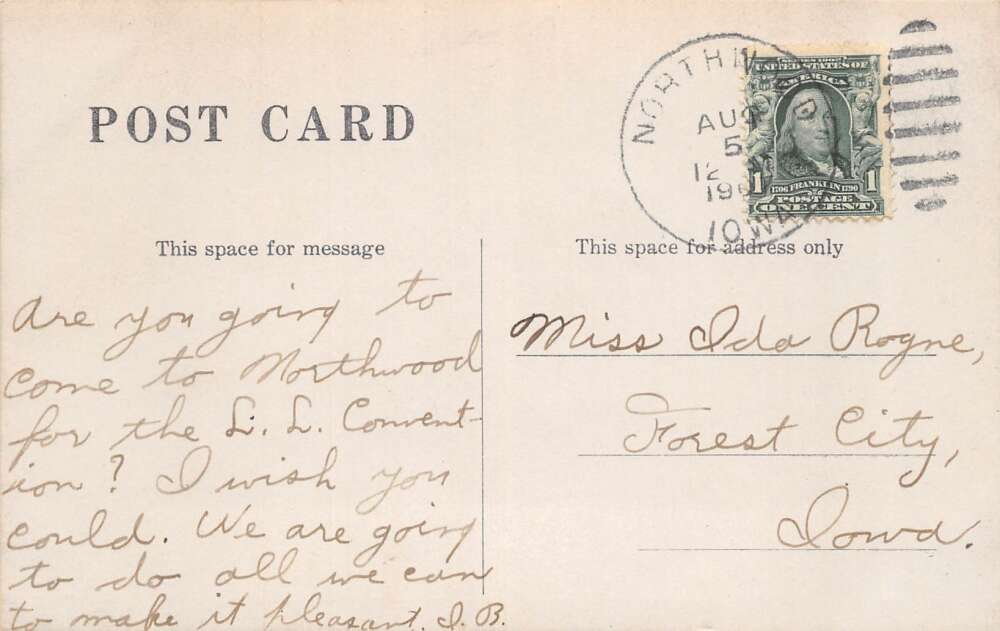 POST CARD
NORTHW
AUG
5
12
190
IOWA
SERIES 1902
UNITED STATES OF
AMERICA
1 1706 FRANKLIN 1790 1
POSTAGE
ONE CENT
This space for message
Are you going to
come to Northwood
for the L. L. Convent-
ion? I wish you
could. We are going
to do all we can
to make it pleasant. I. B.
This space for address only
Miss Ida Rogne,
Forest City,
Iowa.